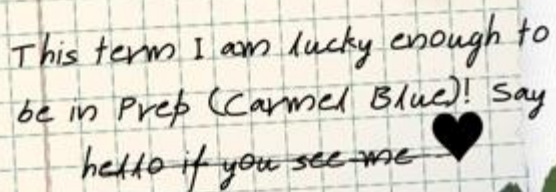 This term I am lucky enough to
be in Prep (Carmel Blue)! Say
hello if you see me